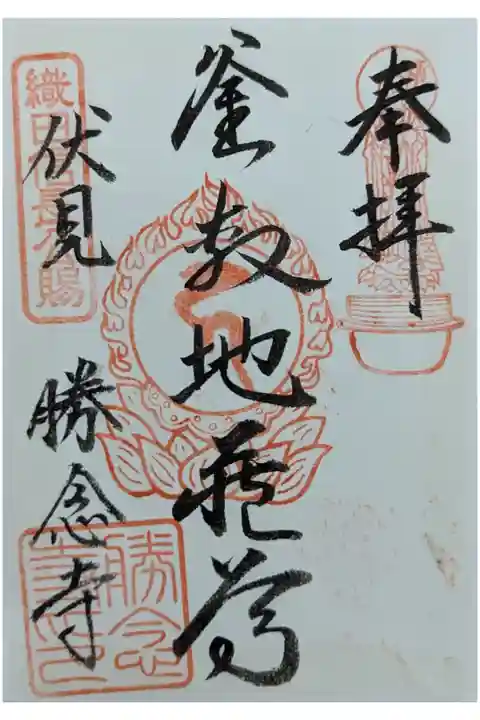 奉拝
釜敷地蔵尊
伏見
勝念寺
織田信長公賜
勝念寺印